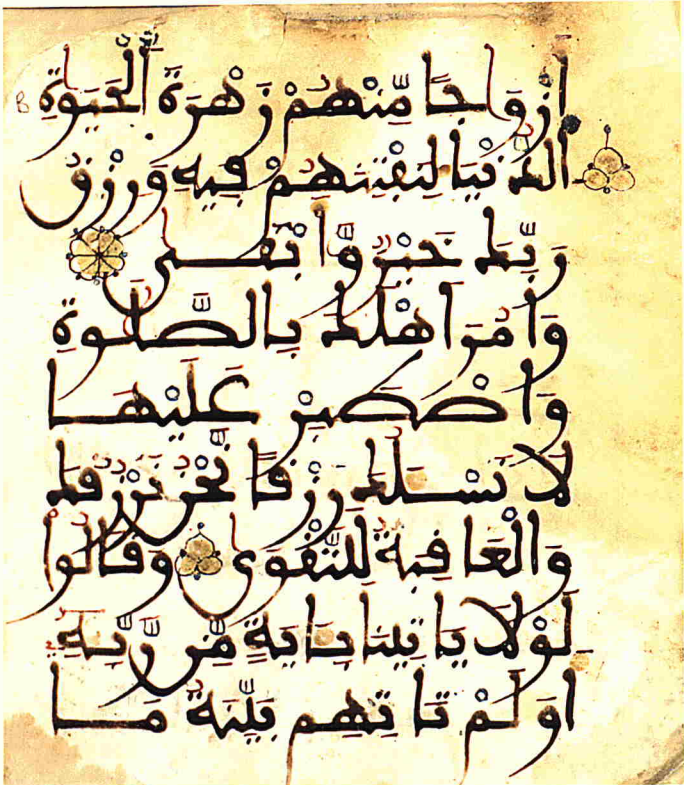 أَزْوَاجًا مِّنْهُمْ زَهْرَةَ ٱلْحَيَوٰةِ
الدُّنْيَا لِنَفْتِنَهُمْ فِيهِ وَرِزْقُ
رَبِّكَ خَيْرٌ وَّأَبْقَىٰ
وَأْمُرْ أَهْلَكَ بِالصَّلَوٰةِ
وَاصْطَبِرْ عَلَيْهَا
لَا نَسْـَٔلُكَ رِزْقًا نَّحْنُ نَرْزُقُكَ
وَالْعَاقِبَةُ لِلتَّقْوَىٰ وَقَالُوا
لَوْلَا يَاتِينَا بِـَٔايَةٍ مِّن رَّبِّهِ
أَوَلَمْ تَاتِهِم بَيِّنَةُ مَا